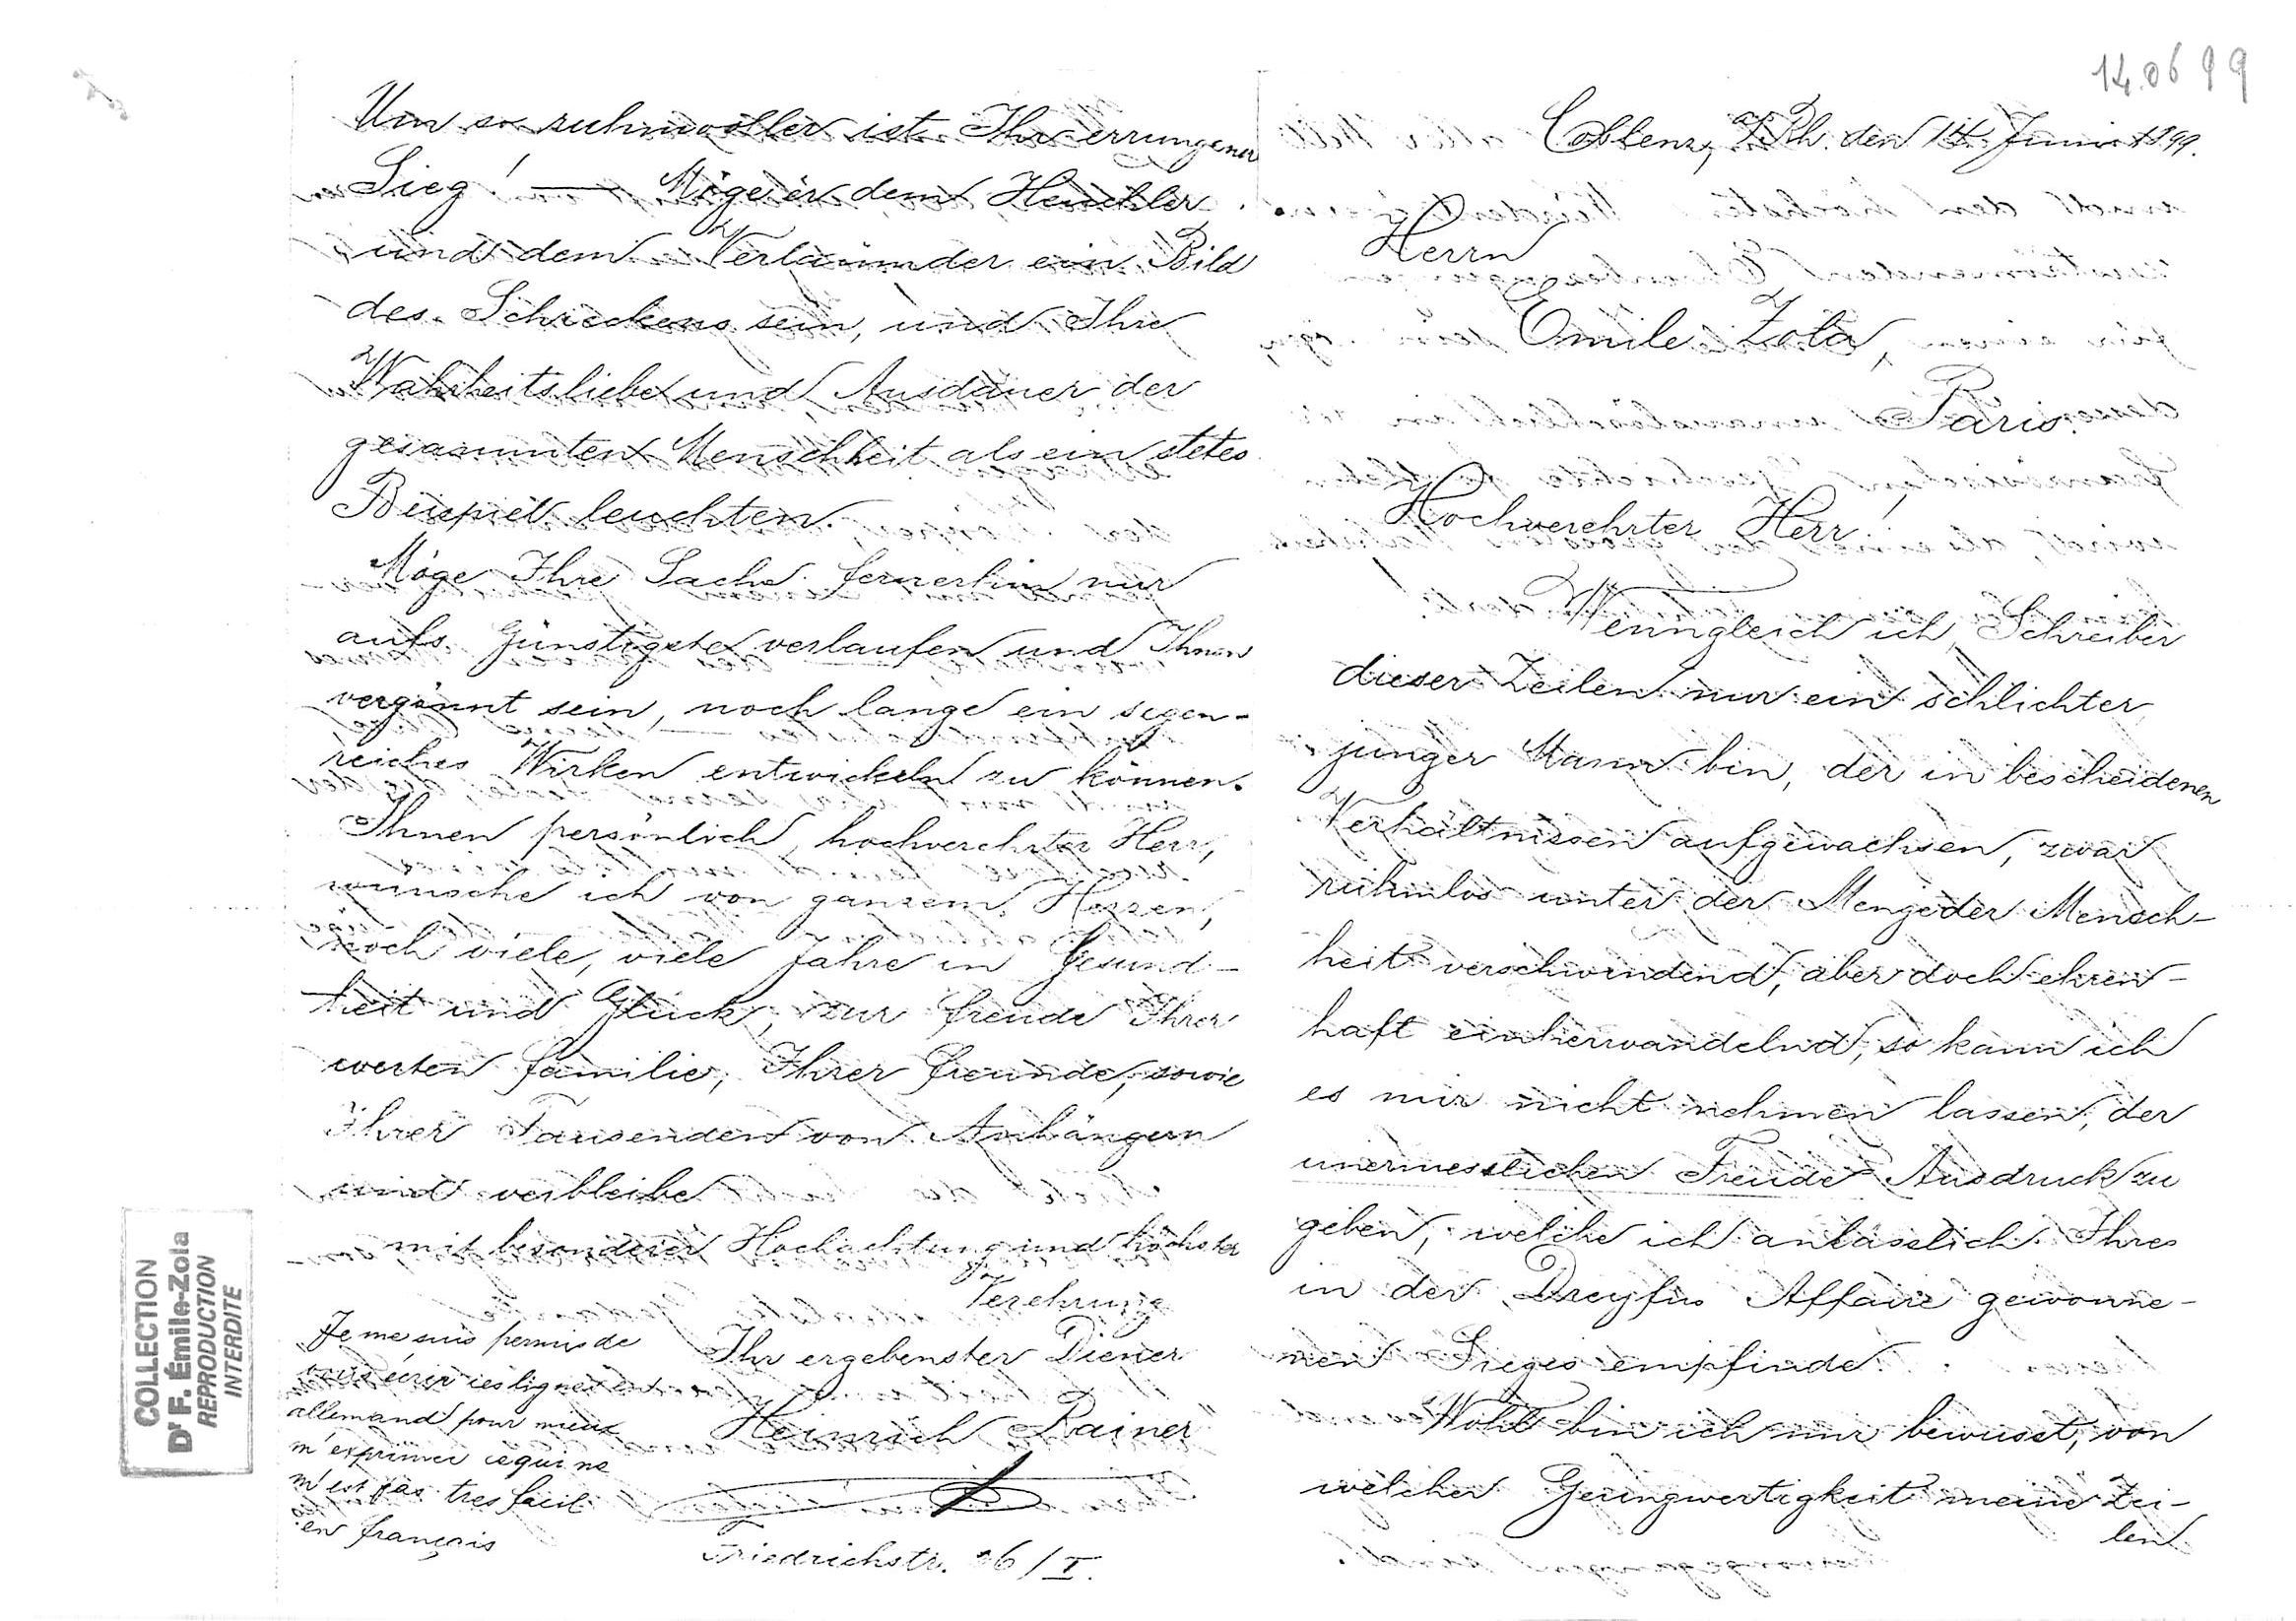 14.06 99
Coblenz, a/Rh. den 14. Juni 1899.
Herrn
Emile Zola,
Paris.
Hochverehrter Herr!
Wenngleich ich, Schreiber
dieser Zeilen nur ein schlichter
junger Mann bin, der in bescheidenen
Verhältnissen aufgewachsen, zwar
ruhmlos unter der Menge der Mensch-
heit verschwindend, aber doch ehren-
haft einherwandelnd, so kann ich
es mir nicht nehmen lassen, der
unermesslichen Freude Ausdruck zu
geben, welche ich anlässlich Ihres
in der Dreyfus Affaire gewonne-
nen Sieges empfinde.
Wohl bin ich mir bewusst, von
welcher Geringwertigkeit meine Zei-
len
Um so ruhmvoller ist Ihr errungener
Sieg! — Möge er dem Heuchler
und dem Verläumder ein Bild
des Schreckens sein, und Ihre
Wahrheitsliebe und Ausdauer der
gesammten Menschheit als ein stetes
Beispiel leuchten.
Möge Ihre Sache fernerhin nur
aufs Günstigste verlaufen und Ihnen
vergönnt sein, noch lange ein segen-
reiches Wirken entwickeln zu können.
Ihnen persönlich, hochverehrter Herr,
wünsche ich von ganzem Herzen,
noch viele, viele Jahre in Gesund-
heit und Glück, zur Freude Ihrer
werten Familie, Ihrer Freunde, sowie
Ihrer Tausenden von Anhängern
und verbleibe
mit besonderer Hochachtung und höchster
Verehrung
Ihr ergebenster Diener
Heinrich Rainer
Friedrichstr. 6/I.
Je me suis permis de
vous écrir ces lignes en
allemand pour mieux
m'exprimer ce qui ne
m'est pas tres facil
en français
COLLECTION
Dr F. Émile-Zola
REPRODUCTION
INTERDITE